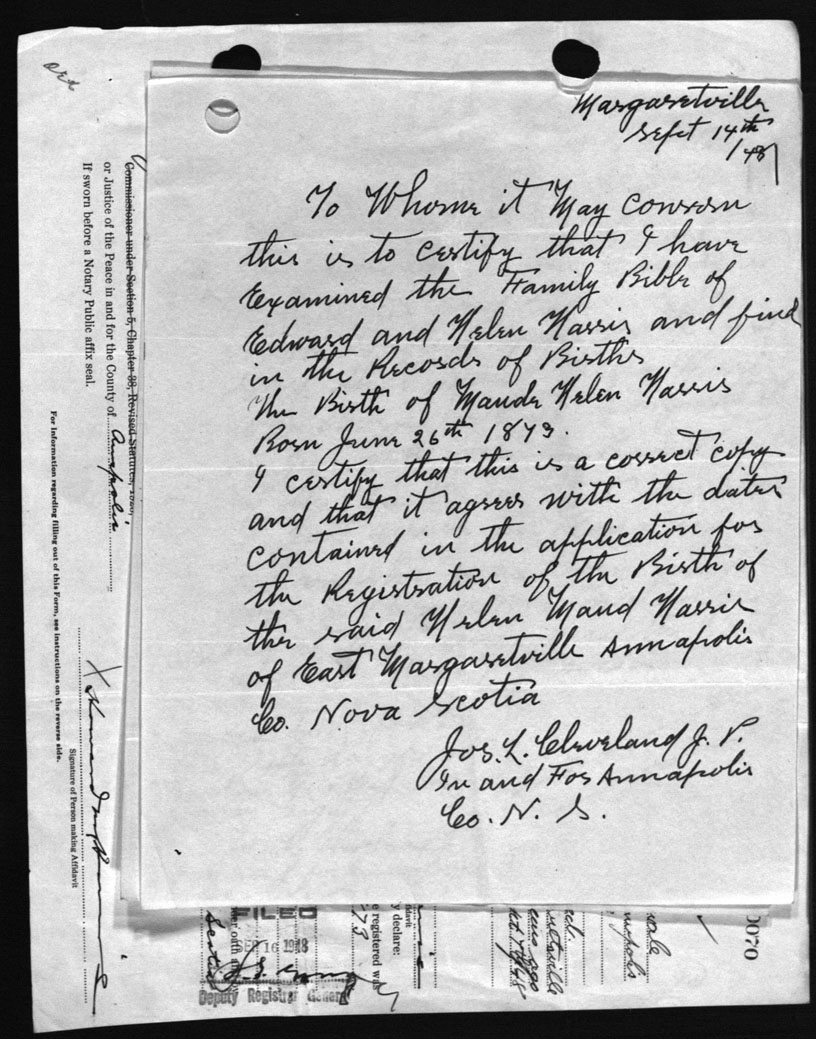 Margaretville
Sept 14th
/48
To Whome it May Concern
this is to certify that I have
Examined the Family Bible of
Edward and Helen Harris and find
in the Records of Births
the Birth of Maude Helen Harris
Born June 26th 1873.
I certify that this is a correct copy
and that it agrees with the dates
contained in the application for
the Registration of the Birth of
the said Helen Maud Harris
of East Margaretville Annapolis
Co. Nova Scotia
Jos. L. Cleveland J. P.
In and For Annapolis
Co. N. S.
Commissioner under Section 5, Chapter 38, Revised Statutes,
or Justice of the Peace in and for the County of Annapolis
If sworn before a Notary Public affix seal.
For information regarding filling out of this Form, see instructions on the reverse side.
X
Signature of Person making Affidavit
FILED
SEP 16 1948
Deputy Registrar General
e registered was
73
y declare:
0070